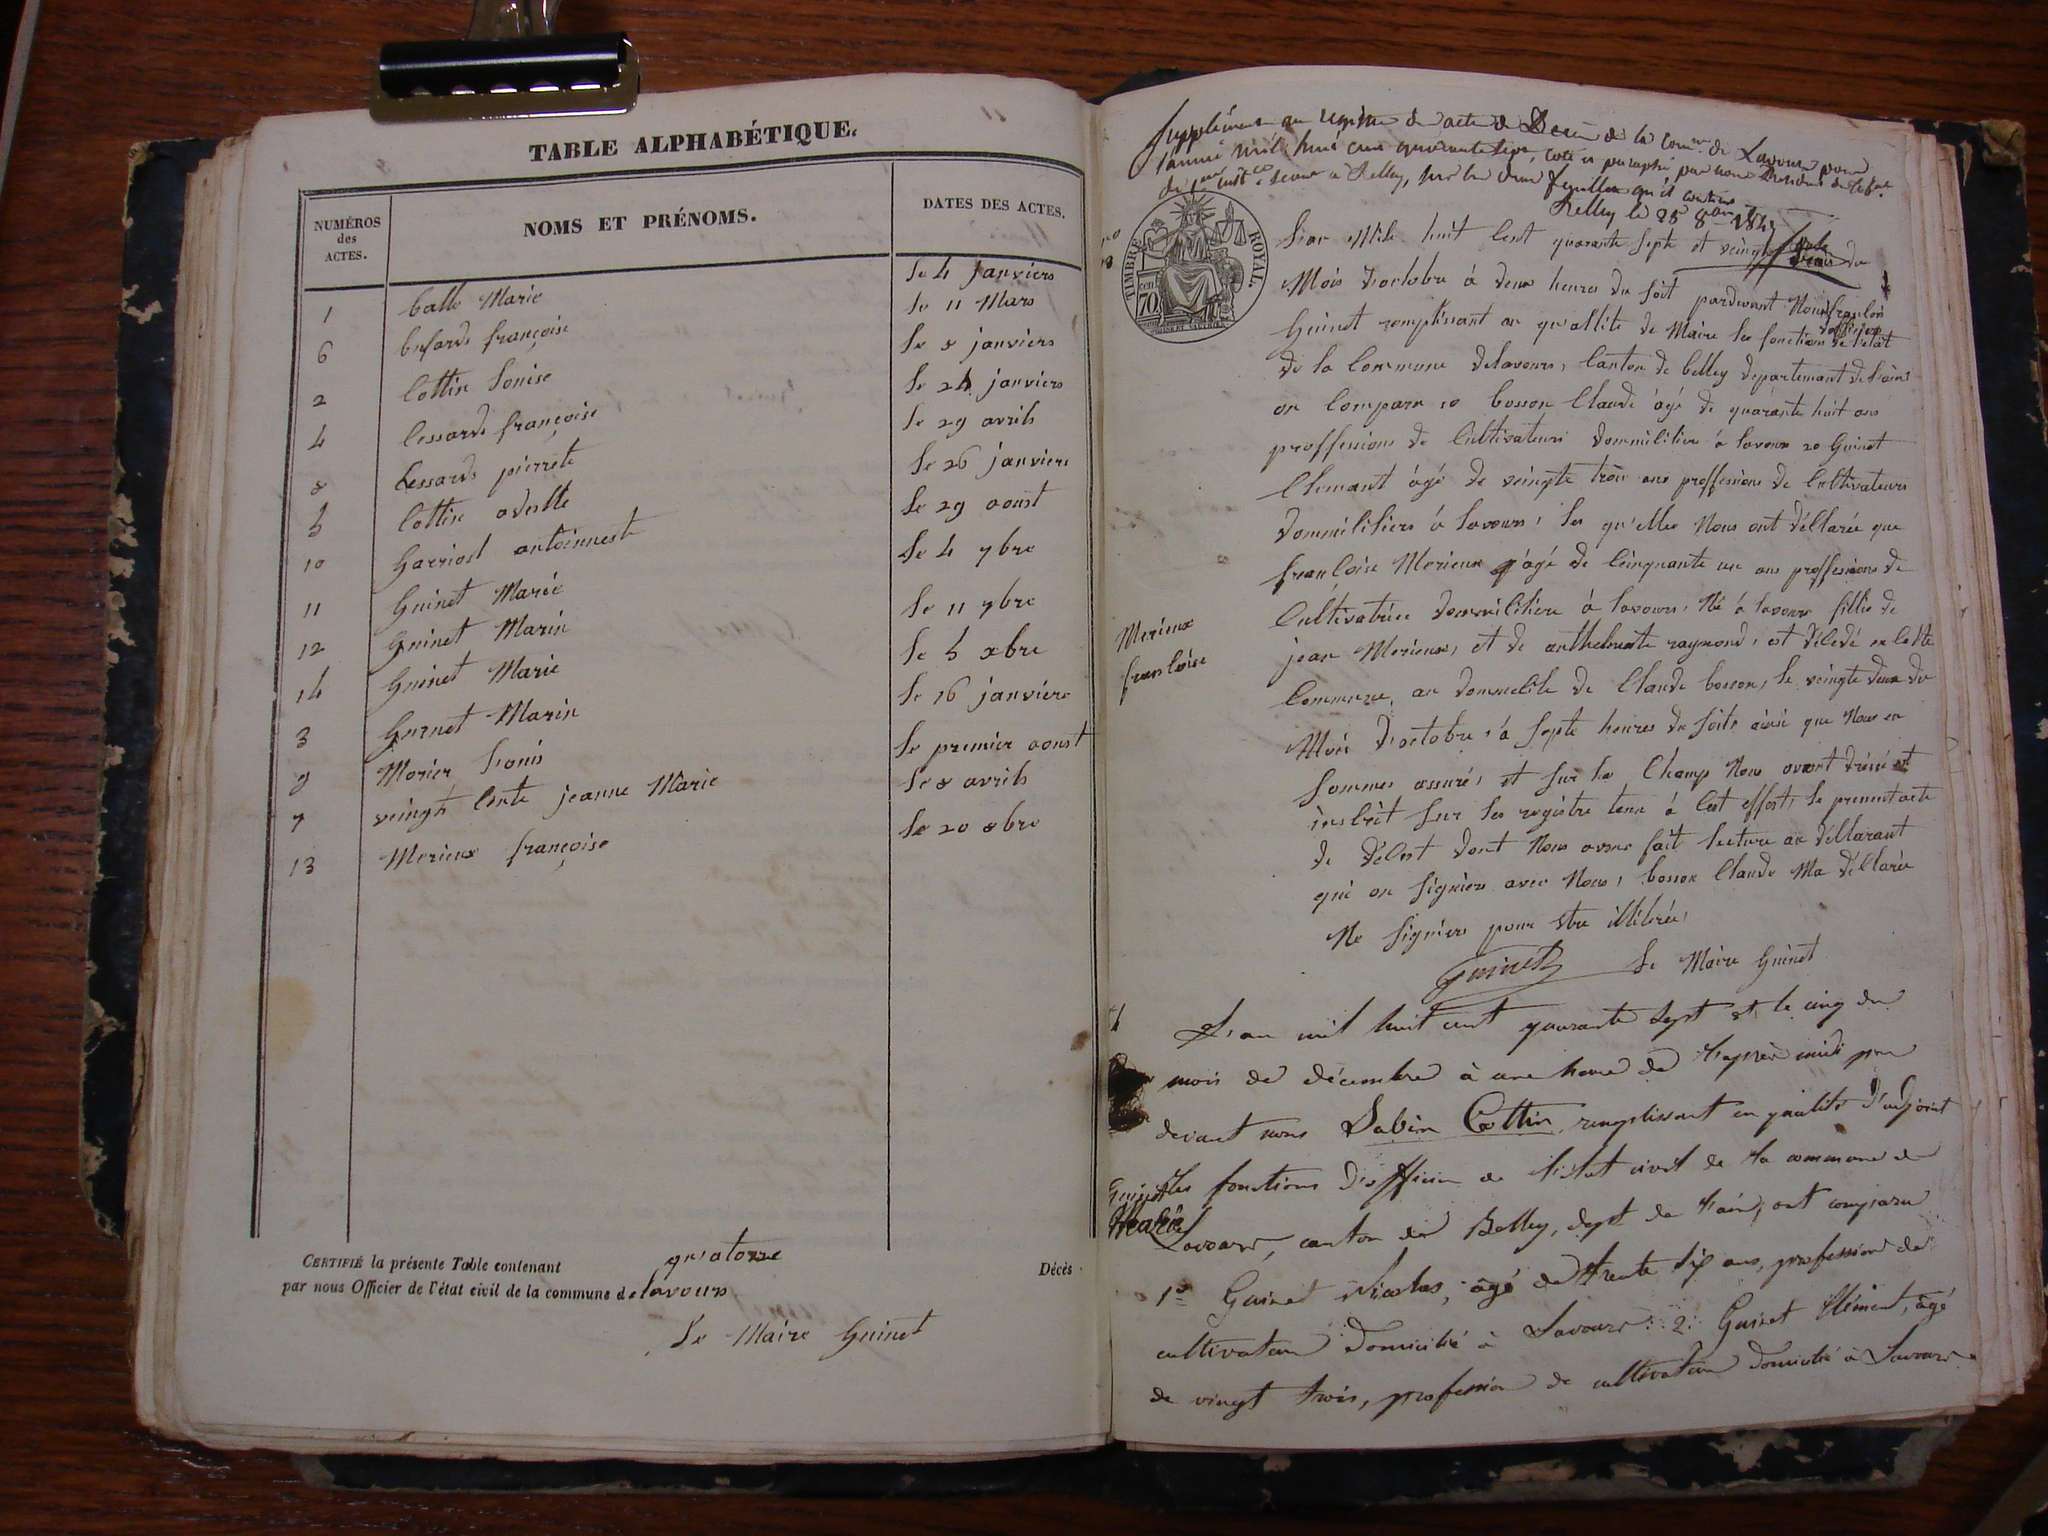 TABLE ALPHABÉTIQUE.
NUMÉROS des ACTES.
NOMS ET PRÉNOMS.
DATES DES ACTES.
1 ballo Marie le 4 janviers
6 françoise le 11 Mars
2 Cottin Louise le 8 janviers
4 Cessards françoise le 24 janviers
8 Cessards pierrete le 29 avrils
5 Cottin le 26 janviers
10 antoinneste le 29 aoust
11 Guinet Marie le 4 7bre
12 Guinet Marin le 11 7bre
14 Guinet Marie le 5 xbre
3 Guinet Marin le 16 janviers
9 Morier Louis le premier aoust
7 jeanne Marie le 8 avrils
13 Merieux françoise le 20 8bre
CERTIFIÉ la présente Table contenant quatorze Décès
par nous Officier de l'état civil de la commune de lavours
Le Maire Guinet
Supplément au registre de actes de Décès de la Comne de Lavours pour
l'année mil huit cent quarante sept, coté et paraphé par nous Président du
de 1ere à Belley, sur les deux feuilles qu'il contient
Belley le 25 8bre 1847
TIMBRE ROYAL
70
l'an Mile huit Cent quarante septe et veingte deux du
Mois d'octobre à deux heures du soit pardevant Nous françois
Guinet remplissant an qu'allité de Maire les fonctions d'officier de l'état
de la Commune delavours, Canton de belley departemant de l'ain
on Comparu 10 bosson Claude âgé de quarante huit ans
proffesions de Cultivateurs à lavours 20 Guinet
Clemant âgé de veingte trois ans proffesions de Cultivateurs
à lavours, les qu'elles Nous ont déllarée que
françoise Merieux âgé de Ceinquante un ans proffesions de
Cultivatrice à lavours, Né à lavours fillie de
jean Merieux, et de anthelmette raymond, est déledé en Cette
Merieux
françoise
Commune, au de Claude bosson, le veingte deux du
Mois d'octobre, à septe heures du soits ainsi que Nous en
sommes assuré, et sur le Champ Nous avont dréssé et
inscrit sur les registre tenu à Cest effest, le present acte
de dècest dont Nous avons fait lecture au déllarant
qui on signiers avec Nous, bosson Claude Ma déllarée
Ne signiers pour être illitérée,
Guinet Le Maire Guinet
L'an mil huit cent quarante sept et le cinq du
mois de décembre à une heure de l'après midi par
devant nous Sabin Cottin, remplissant en qualité d'adjoint
les fonctions d'officier de l'état civil de la commune de
Guinet
Marie
Lavours, canton de Belley, dept de l'ain, ont comparu
1° Guinet Nicolas, âgé de trente six ans, profession de
cultivateur domicilié à Lavours: 2: Guinet Clément, âgé
de vingt trois, profession de cultivateur domicilié à Lavours